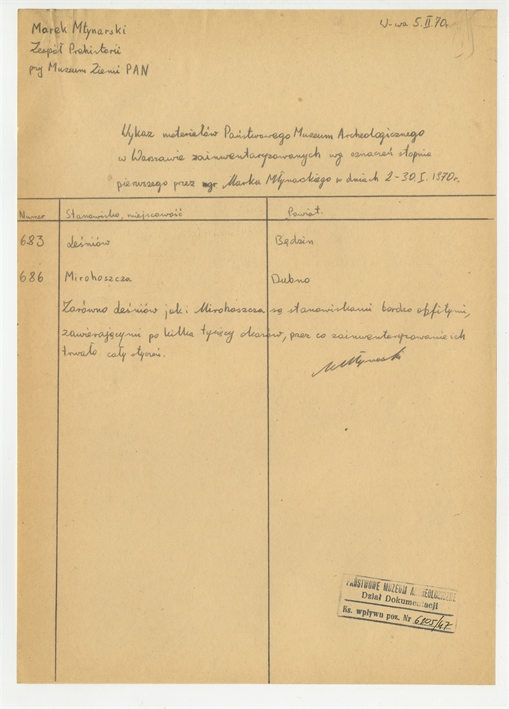 Marek Młynarski
Zespół Prehistorii
przy Muzeum Ziemi PAN
W-wa 5.II.70r.
Wykaz materiałów Państwowego Muzeum Archeologicznego
w Warszawie zainwentaryzowanych wg oznaczeń stopnia
pierwszego przez mgr. Marka Młynarskiego w dniach 2-30.I.1970r.
Numer Stanowisko, miejscowość Powiat
683 Leśniów Będzin
686 Mirohoszcza Dubno
Zarówno Leśniów jak i Mirohoszcza są stanowiskami bardzo obfitymi,
zawierającymi po kilka tysięcy okazów, przez co zainwentaryzowanie ich
trwało cały styczeń.
PAŃSTWOWE MUZEUM ARCHEOLOGICZNE
Dział Dokumentacji
Ks. wpływu poz. Nr 6105/47